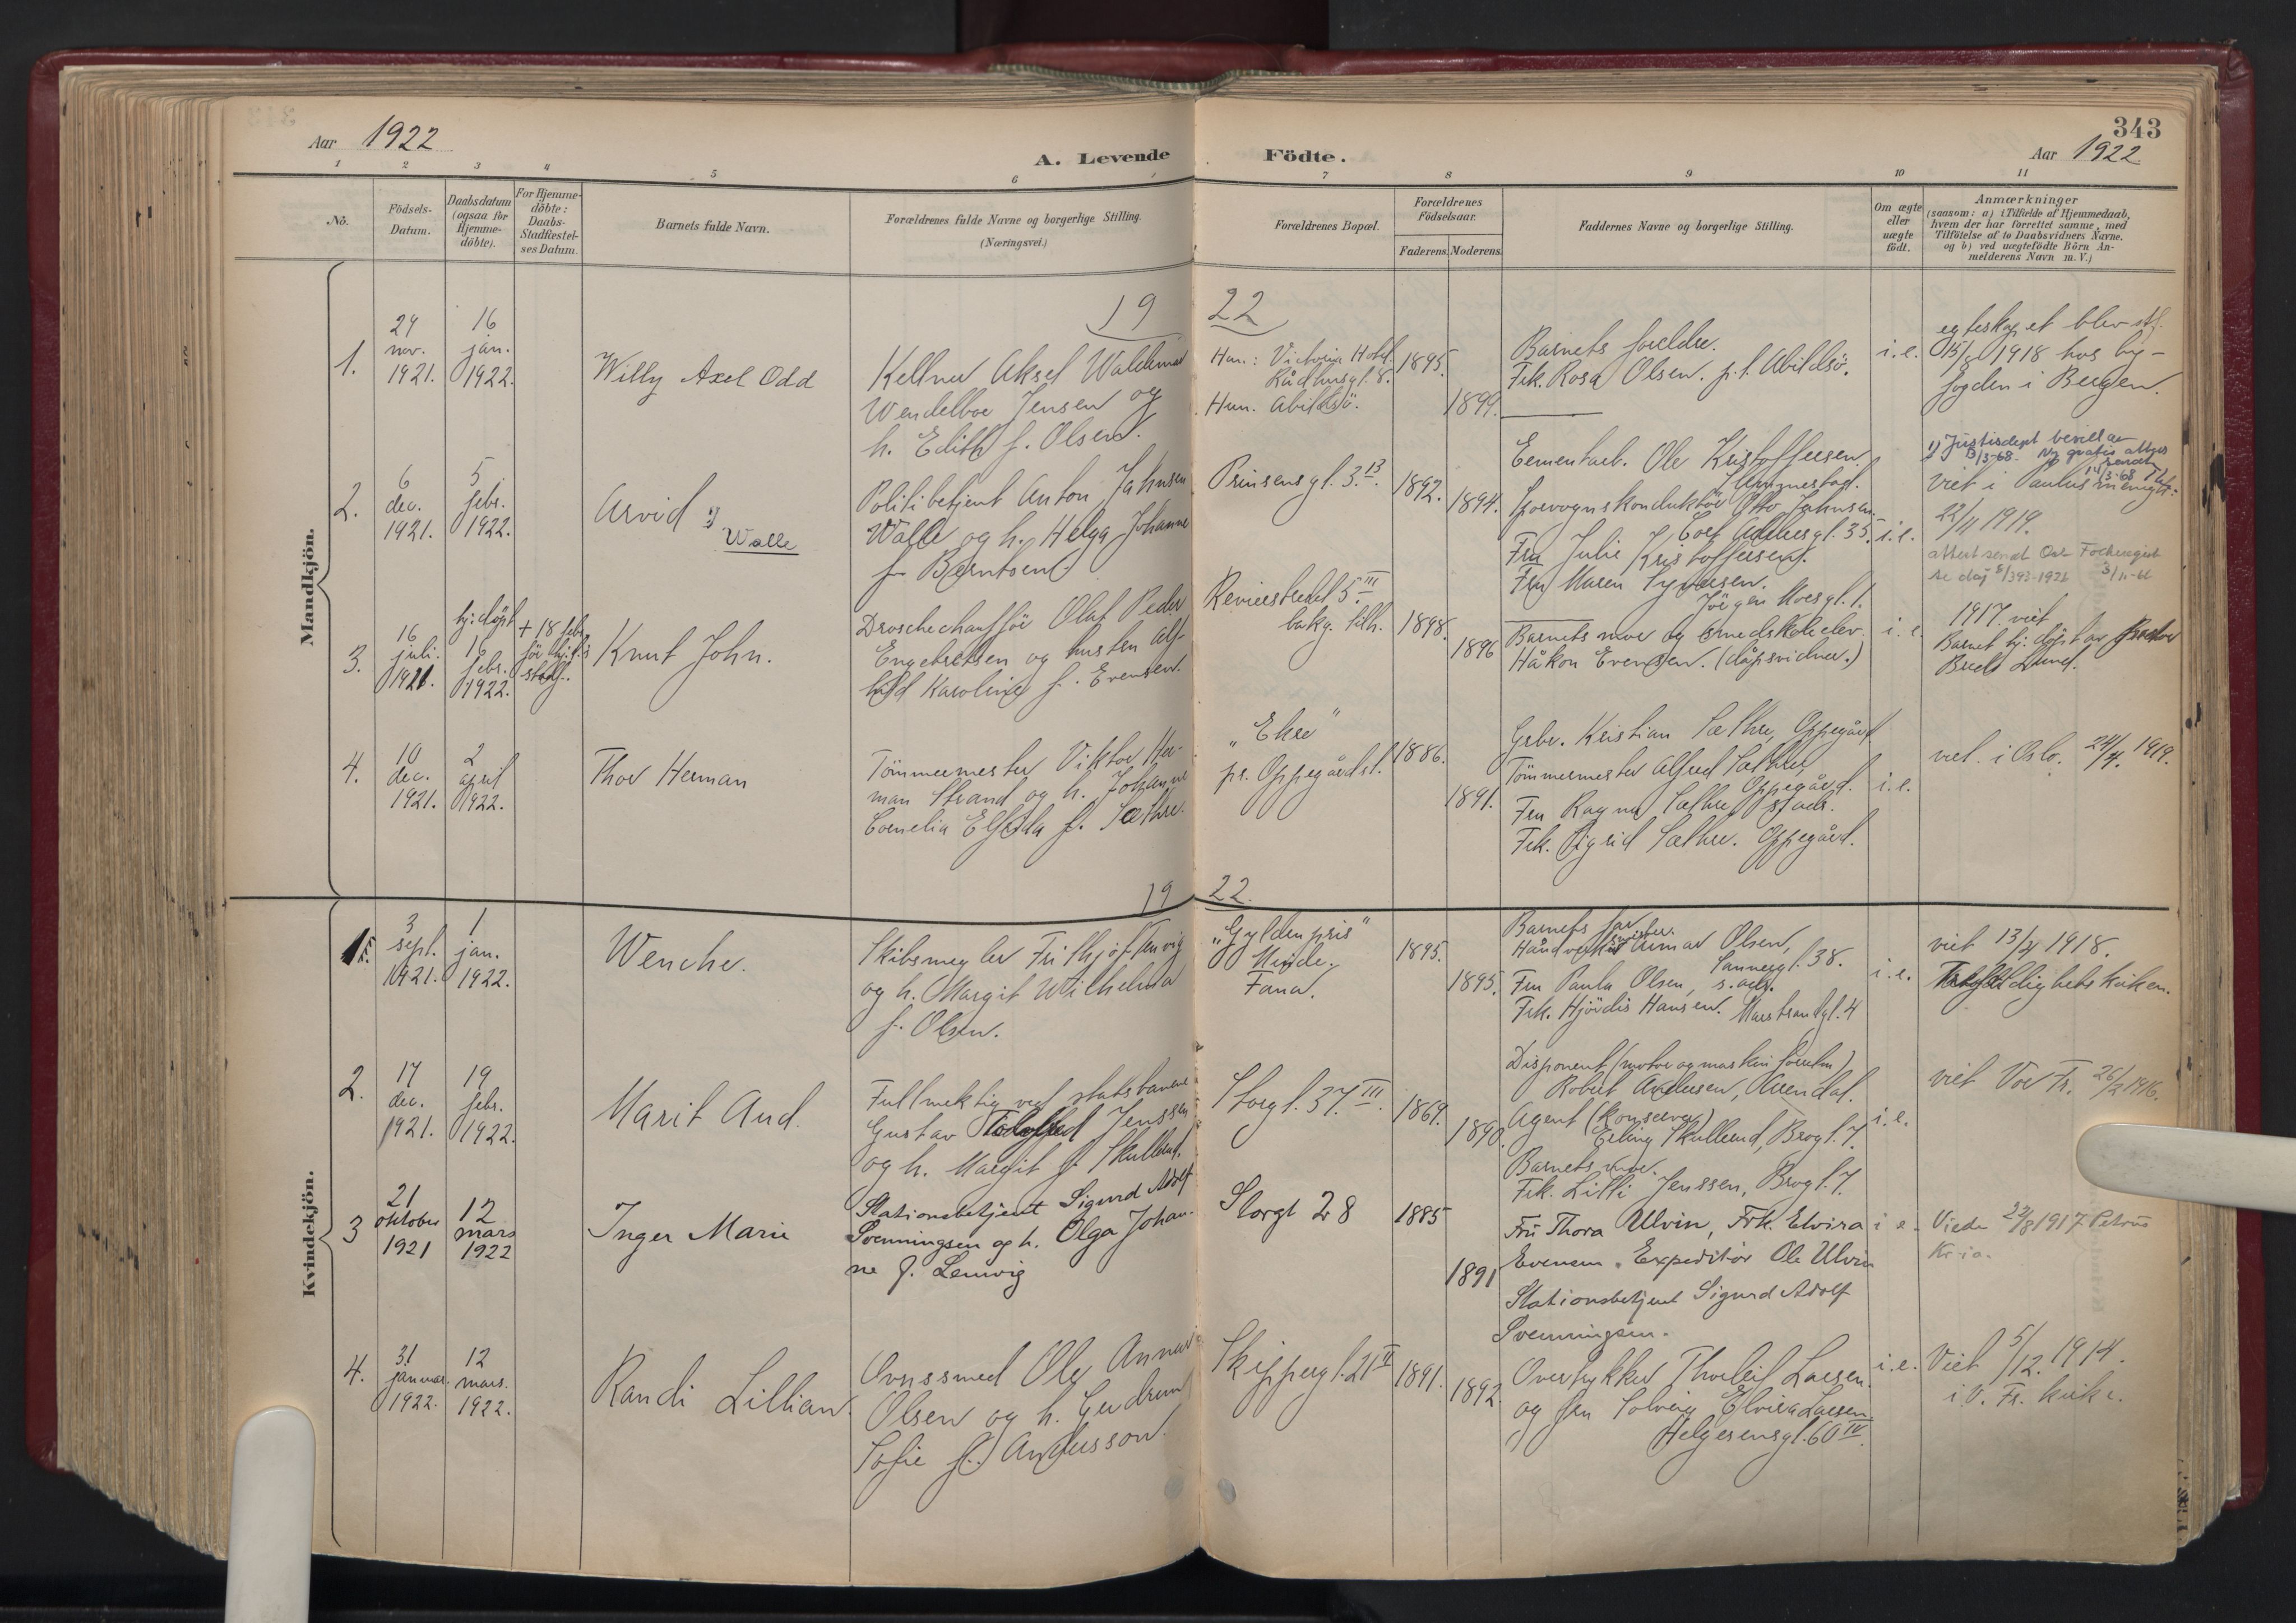 343
Aar 1922
A. Levende Födte.
Aar 1922
1 2 3 4 5 6 7 8 9 10 11
No.
Födsels-
Datum.
Daabsdatum
(ogsaa for
Hjemme-
döbte).
For Hjemme-
döbte:
Daabs-
Stadfæstel-
ses Datum.
Barnets fulde Navn.
Forældrenes fulde Navne og borgerlige Stilling.
(Næringsvei.)
Forældrenes Bopæl.
Forældrenes
Födselsaar.
Faderens. Moderens.
Faddernes Navne og borgerlige Stilling.
Om ægte
eller
uægte
födt.
Anmærkninger
(saasom: a) i Tilfælde af Hjemmedaab,
hvem der har forrettet samme, med
Tilföielse af to Daabsvidners Navne.
og b) ved uægtefödte Börn An-
melderens Navn m. V.)
Mandkjön.
19 22
1.
24
nov.
1921.
16
jan.
1922.
Willy Axel Odd
Kellner Aksel Waldemar
Wendelboe Jensen og
h. Edith f. Olsen.
Han: Victoria Hotel.
Rådhusgt. 8.
Hun. Abildsö.
1895.
1899.
Barnets foreldre.
Frk. Rosa Olsen. p.t. Abildsö.
i.e.
egteskapet blev stf.
15/8 1918 hos by-
fogden i Bergen.
2.
6
dec.
1921.
5
febr.
1922.
Arvid 1)
Walle
Politibetjent Anton Jahnsen
Walle og h. Helga Johanne
f. Berntsen.
Prinsensgt. 3.
1892.
1894.
Cementarb. Ole Kristoffersen.
Sporvognskonduktör Otto Jahnsen.
Colf Addersgt. 35.
Fru Julie Kristoffersen.
Fru Maren Syversen.
Jörgen Moesgt. 1.
i.e.
1) Justisdept bevill av
13/3-68. Ny gratis attest
sendt
14/3-68
viet i Paulus menigh.
22/11 1919.
attest sendt Oslo Folkeregist
3.
16
juli.
1921.
hj.döpt
16
febr.
1922.
+ 18 febr.
för hj.d.s
stadf.
Knut John.
Droschechaufför Olaf Peder
Engebretsen og hustru Alf-
hild Karoline f. Evensen.
Revierstredet 5 III
bakg. tilh.
1898.
1896
Barnets mor og
Håkon Evensen. (dåpsvidner.)
i. e.
1917. viet
Barnet hj. döpt av pastor
Bredo Lund.
4.
10
dec.
1921.
2
april
1922.
Thor Herman
Tömmermester Viktor Her-
man Strand og h. Johanne
Cornelia Elfrida f. Sæthre.
"Ekre"
pr. Oppegård st.
1886.
1891.
Grbr. Kristian Sæthre, Oppegård
Tömmermester Alfred Sæthre,
Oppegård.
Fru Ragna Sæthre, s. adr.
Frk. Sigrid Sæthre. Oppegård.
i. e.
viet. i Oslo. 24/4. 1919.
Kvindekjön.
19 22.
1.
3
sept.
1921.
1
jan.
1922.
Wenche.
Skibsmegler Frithjof Tenvig
og h. Margit Wilhelma
f. Olsen.
"Gyldenpris"
Minde.
Fana.
1895.
1895.
Barnets far
Håndverksmester Armar Olsen,
Sannergt. 38.
Fru Paula Olsen, s. adr.
Frk. Hjördis Hansen. Marstrandgt. 4
i. e.
viet 13/4 1918.
Trefoldighetskirken.
2.
17
dec.
1921.
19
febr.
1922.
Marit Aud.
Fullmektig ved statsbanene
Gustav Jenssen
og h. Margit f. Skullerud.
Storgt. 37. III.
1869.
1890.
Disponent (motor og maskin forretn)
Robert Axelsen, Arendal.
Agent (konserver)
Erling Skullerud, Brogt. 7.
Barnets mor.
Frk. Lilli Jenssen, Brogt. 7.
i. e.
viet Vor Fr. 26/2 1916.
3
21
oktober
1921
12
mars
1922
Inger Marie
Stationsbetjent Sigurd Adolf
Svenningsen og h. Olga Johan-
ne f. Lemvig
Storgt 28
1885
1891
Fru Thora Ulvin, Frk. Elvira
Evensen. Expeditör Ole Ulvin
Stationsbetjent Sigurd Adolf
Svenningsen.
i e.
Viede 22/8 1917 Petrus
Kr.ia.
4.
31
januar.
1922.
12
mars.
1922.
Randi Lillian.
Ovnssmed Ole Annar
Olsen og h. Gudrun
Sofie f. Andersson.
Skippergt. 21 II
1891.
1892.
Overtrykker Thorleif Larsen.
og fru Solveig Elvira Larsen
Helgesensgt. 60 IV.
i. e.
Viet 5/12. 1914.
i V. Fr. kirke.